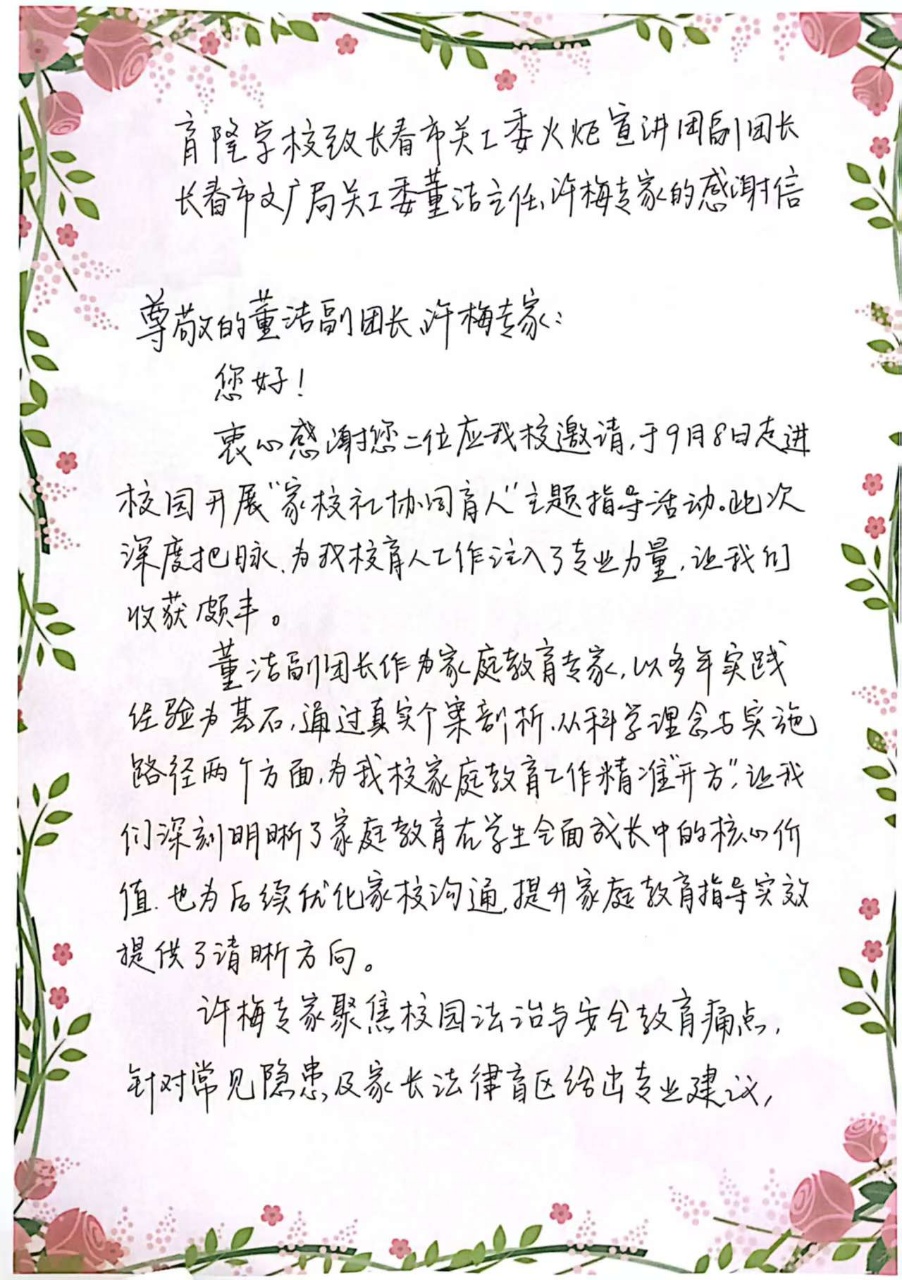 育隆学校致长春市关工委火炬宣讲团副团长
长春市文广局关工委董洁主任、许梅专家的感谢信
尊敬的董洁副团长、许梅专家：
您好！
衷心感谢您二位应我校邀请，于9月8日走进
校园开展“家校社协同育人”主题指导活动。此次
深度把脉，为我校育人工作注入了专业力量，让我们
收获颇丰。
董洁副团长作为家庭教育专家，以多年实践
经验为基石，通过真实个案剖析，从科学理念与实施
路径两个方面，为我校家庭教育工作精准“开方”，让我
们深刻明晰了家庭教育在学生全面成长中的核心价
值，也为后续优化家校沟通，提升家庭教育指导实效
提供了清晰方向。
许梅专家聚焦校园法治与安全教育痛点，
针对常见隐患及家长法律盲区给出专业建议，